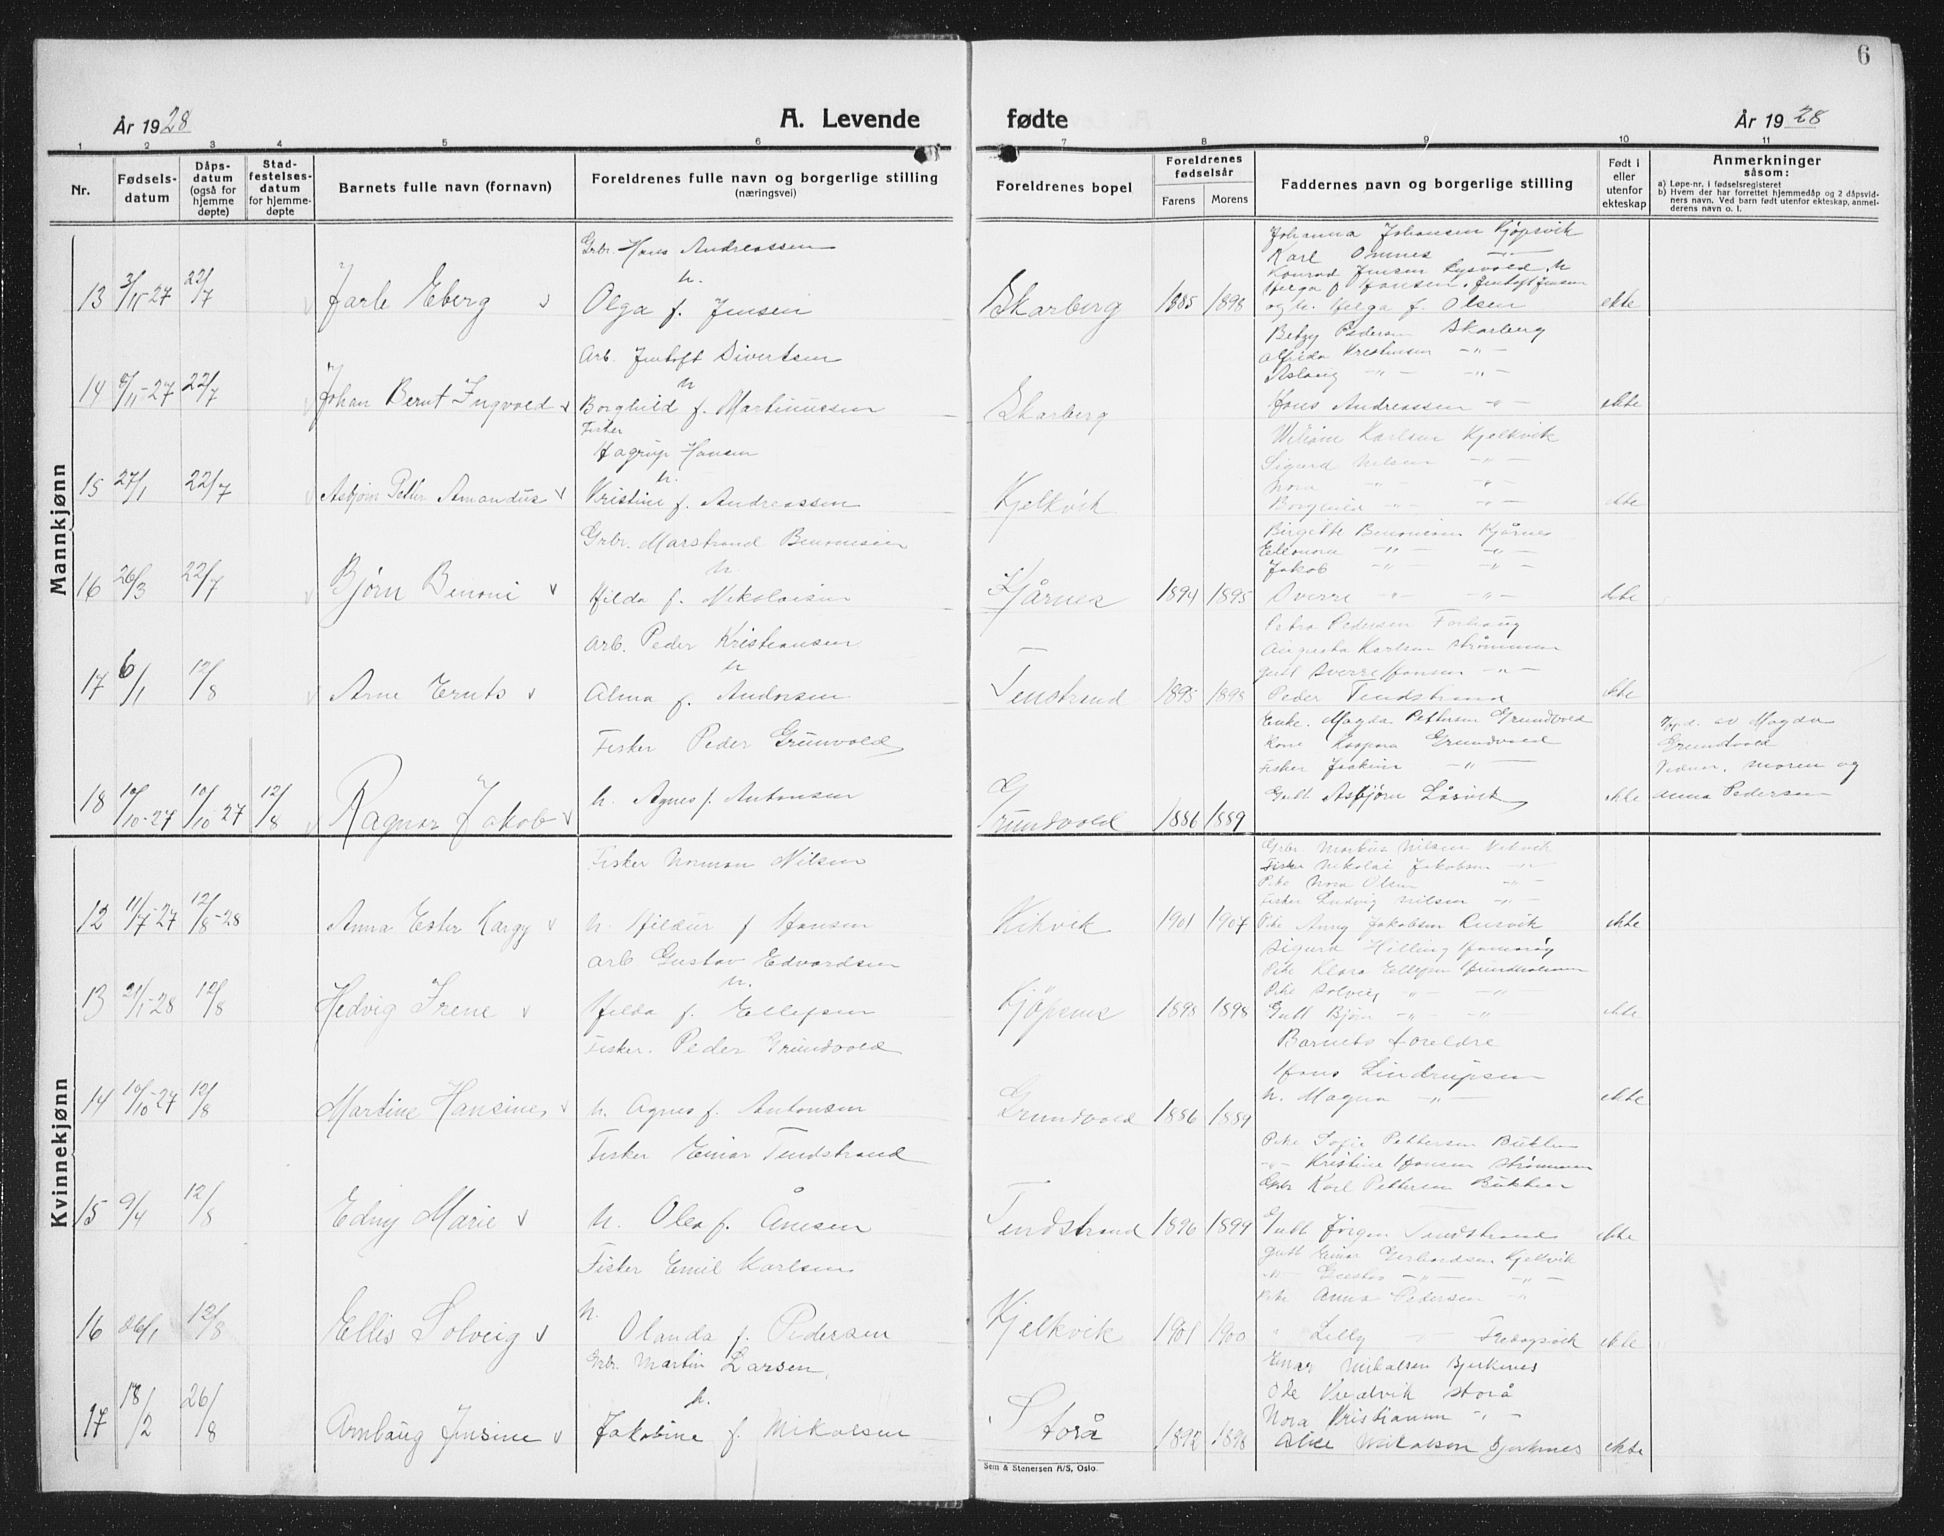 6
År 1928
A. Levende fødte
År 1928
1 2 3 4 5 6 7 8 9 10 11
Nr.
Fødsels-
datum
Dåps-
datum
(også for
hjemme
døpte)
Stad-
festelses-
datum
for hjemme-
døpte
Barnets fulle navn (fornavn)
Foreldrenes fulle navn og borgerlige stilling
(næringsvei)
Foreldrenes bopel
Foreldrenes
fødselsår
Farens
Morens
Faddernes navn og borgerlige stilling
Født i
eller
utenfor
ekteskap
Anmerkninger
såsom:
a) Løpe-nr. i fødselsregisteret
b) Hvem der har forrettet hjemmedåp og 2 dåpsvid-
ners navn. Ved barn født utenfor ekteskap, anmel-
derens navn o. l.
Mannkjønn
Grbr. Hans Andreassen
h.
13 3/11-27 22/7 Jarle Eberg v
Olga f. Jensen
Skarberg 1885 1898
Johanna Johansen Kjøpsvik
Karl
Konrad Jensen
og h. Helga f. Olsen
ekte
Arb. Jentoft Sivertsen
h
14 22/7 Johan Bernt Ingvald v
Borghild f. Martinussen
Skarberg
Betzy Pedersen Skarberg
Alfida Kristensen -"-
Aslaug -"- -"-
Hans Andreassen -"-
ekte
Fisker
Hagrup Hansen
h.
15 27/1 22/7 Asbjørn Peder Amandus v
Kristine f. Andreassen
Kjelkvik
Karlsen Kjelkvik
Sigurd Nilsen -"-
Nora -"- -"-
Borghild -"- -"-
ekte
Grbr. Marstrand Benonisen
h.
16 26/3 22/7 Bjørn Benoni v
Hilda f. Nikolaisen
Kjårnes 1894 1895
Birgitte Benonisen Kjårnes
Elenora -"- -"-
Jakob -"- -"-
Sverre -"- -"-
ekte
Arb. Peder Kristiansen
h
17 6/1 12/8 Arne Ernts v
Alma f. Andorsen
Tenstrand 1895 1898
Petra Pedersen Forhaug
Augusta Karlsen Strømmen
Gutt Sverre Hansen -"-
Peder Tendstrand
ekte
Fisker Peder Grundvold
18 10/10-27 10/10-27 12/8 Ragnar Jakob v
h. Agnes f. Antonsen
Grundvold 1886 1889
Enke. Magda Pettersen Grundvold
Kone Kaspara Grundvold
Fisker Joakim -"-
Gutt Asbjørn
ekte
av Magda
Grundvold
Vidner. Moren og
Anna Pedersen
Kvinnekjønn
Fisker Norman Nilsen
12 11/7-27 12/8-28 Anna Ester Kargy v
h. Hildur f Hansen
Kikvik 1901 1907
Grbr. Markus Nilsen Kikvik
Fisker Nikolai Jakobsen -"-
Pike Nora Olsen -"-
Fisker Ludvig Nilsen -"-
Pike Anny Jakobsen
ekte
Arb Gustav Edvardsen
h.
13 21/1-28 12/8 Hedvig Irene v
Hilda f. Ellefsen
Kjöpsnes 1898 1898
Sigurd
Pike Klara Ellefsen
Pike Solveig -"- -"-
Gutt Bjørn -"- -"-
ekte
Fisker. Peder Grundvold
14 10/10-27 12/8 Martine Hansine v
h. Agnes f. Antonsen
Grundvold 1886 1889
Barnets foreldre
Hans Lindrupsen
h. Magna -"-
ekte
Fisker Einar Tendstrand
15 9/4 12/8 Edny Marie v
h. Olea f. Åmsen
Tendstrand 1896 1899
Pike Sofie Pettersen Bukken
-"- Kristine Hansen Strømmen
Grbr Karl Pettersen Bukken
Gutt Jörgen Tendstrand
ekte
Fisker Emil Karlsen
h.
16 26/1 12/8 Ellis Solveig v
Olanda f. Pedersen
Kjelkvik 1901 1900
Gutt Einar Gerhardsen Kjelkvik
-"- Gustav -"- -"-
Pike Anna Pedersen -"-
" Lilly -"-
ekte
Grbr. Martin Larsen
h.
17 18/2 26/8 Arnbaug Jensine v
Jakobine f. Mikalsen
Storå 1892 1898
Mikalsen Bjerknes
Ole Storå
Nora Kristiansen -"-
Alice Mikalsen Bjerknes
ekte
Sem & Stenersen A/S, Oslo.